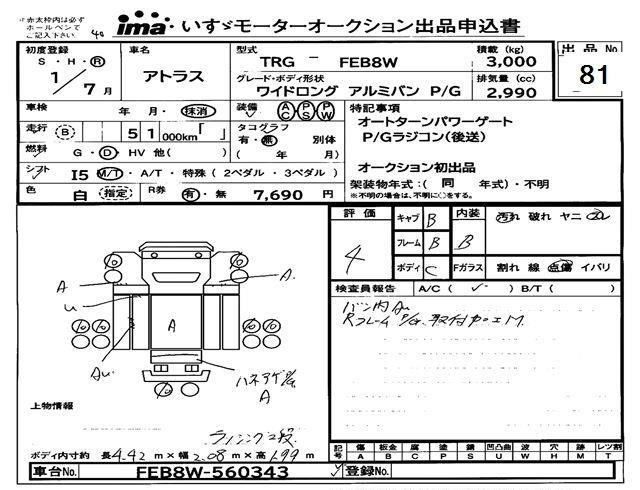 ※赤太枠内は必ず
ホールペンで
ご記入下さい。
ima いすゞモーターオークション出品申込書
初度登録
S・H・R
1/7月
車名
アトラス
型式
TRG － FEB8W
積載 (kg)
3,000
出品No
81
グレード・ボディ形状
ワイドロング アルミバン P/G
排気量 (cc)
2,990
車検 年 月・抹消
装備 AC PS PW
特記事項
オートターンパワーゲート
P/Gラジコン(後送)
オークション初出品
走行 B 51 000km「 」
タコグラフ
有・無 別体
( 年 月)
燃料 G・D・HV 他( )
シフト I5 M/T・A/T・特殊 (2ペダル・3ペダル)
架装物年式:( 同 年式)・不明
※不明の場合は、不明に○をする。
色 白 指定 R券 有・無 7,690 円
評価
4
キャブ B
フレーム B
ボディ C
内装 B
汚れ 破れ ヤニ
Fガラス 割れ 線 点傷 イバリ
検査員報告 A/C( ✓ ) B/T( )
A
A.
A
A
上物情報
ボディ内寸約 長4.42m×幅2.08m×高1.99m
記号 傷 板金 腐 塗 錆 凹凸曲 波 穴 跡 レツ割
A B C P S U W H M T
車台No. FEB8W-560343
登録No.